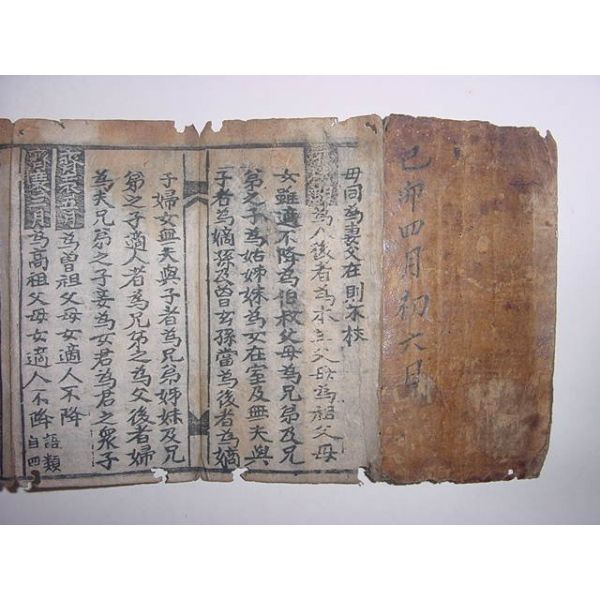 己卯四月初六日
母同為妻父在則不杖
為人後者為本生父母為祖父母
女雖適不降為伯叔父母為兄弟及兄
弟之子為姑姊妹為女在室及無夫與
子者為嫡孫及曾玄孫當為後者為嫡
子婦女無夫與子者為兄弟姊妹及兄
弟之子適人者為兄弟之為父後者婦
為夫兄弟之子妾為女君為君之衆子
齊衰五月為曾祖父母女適人不降
齊衰三月為高祖父母女適人不降
語類
自四